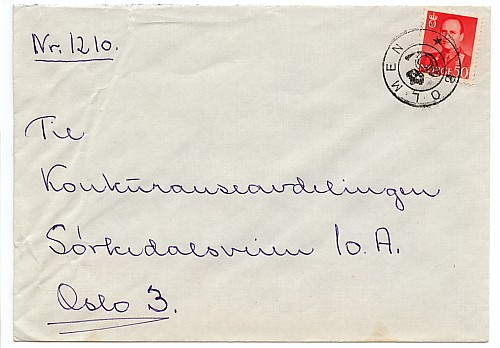 Nr. 1210.
NORGE 50
HOLMEN
Til
Konkurranseavdelingen
Sørkedalsveien 10. A.
Oslo 3.